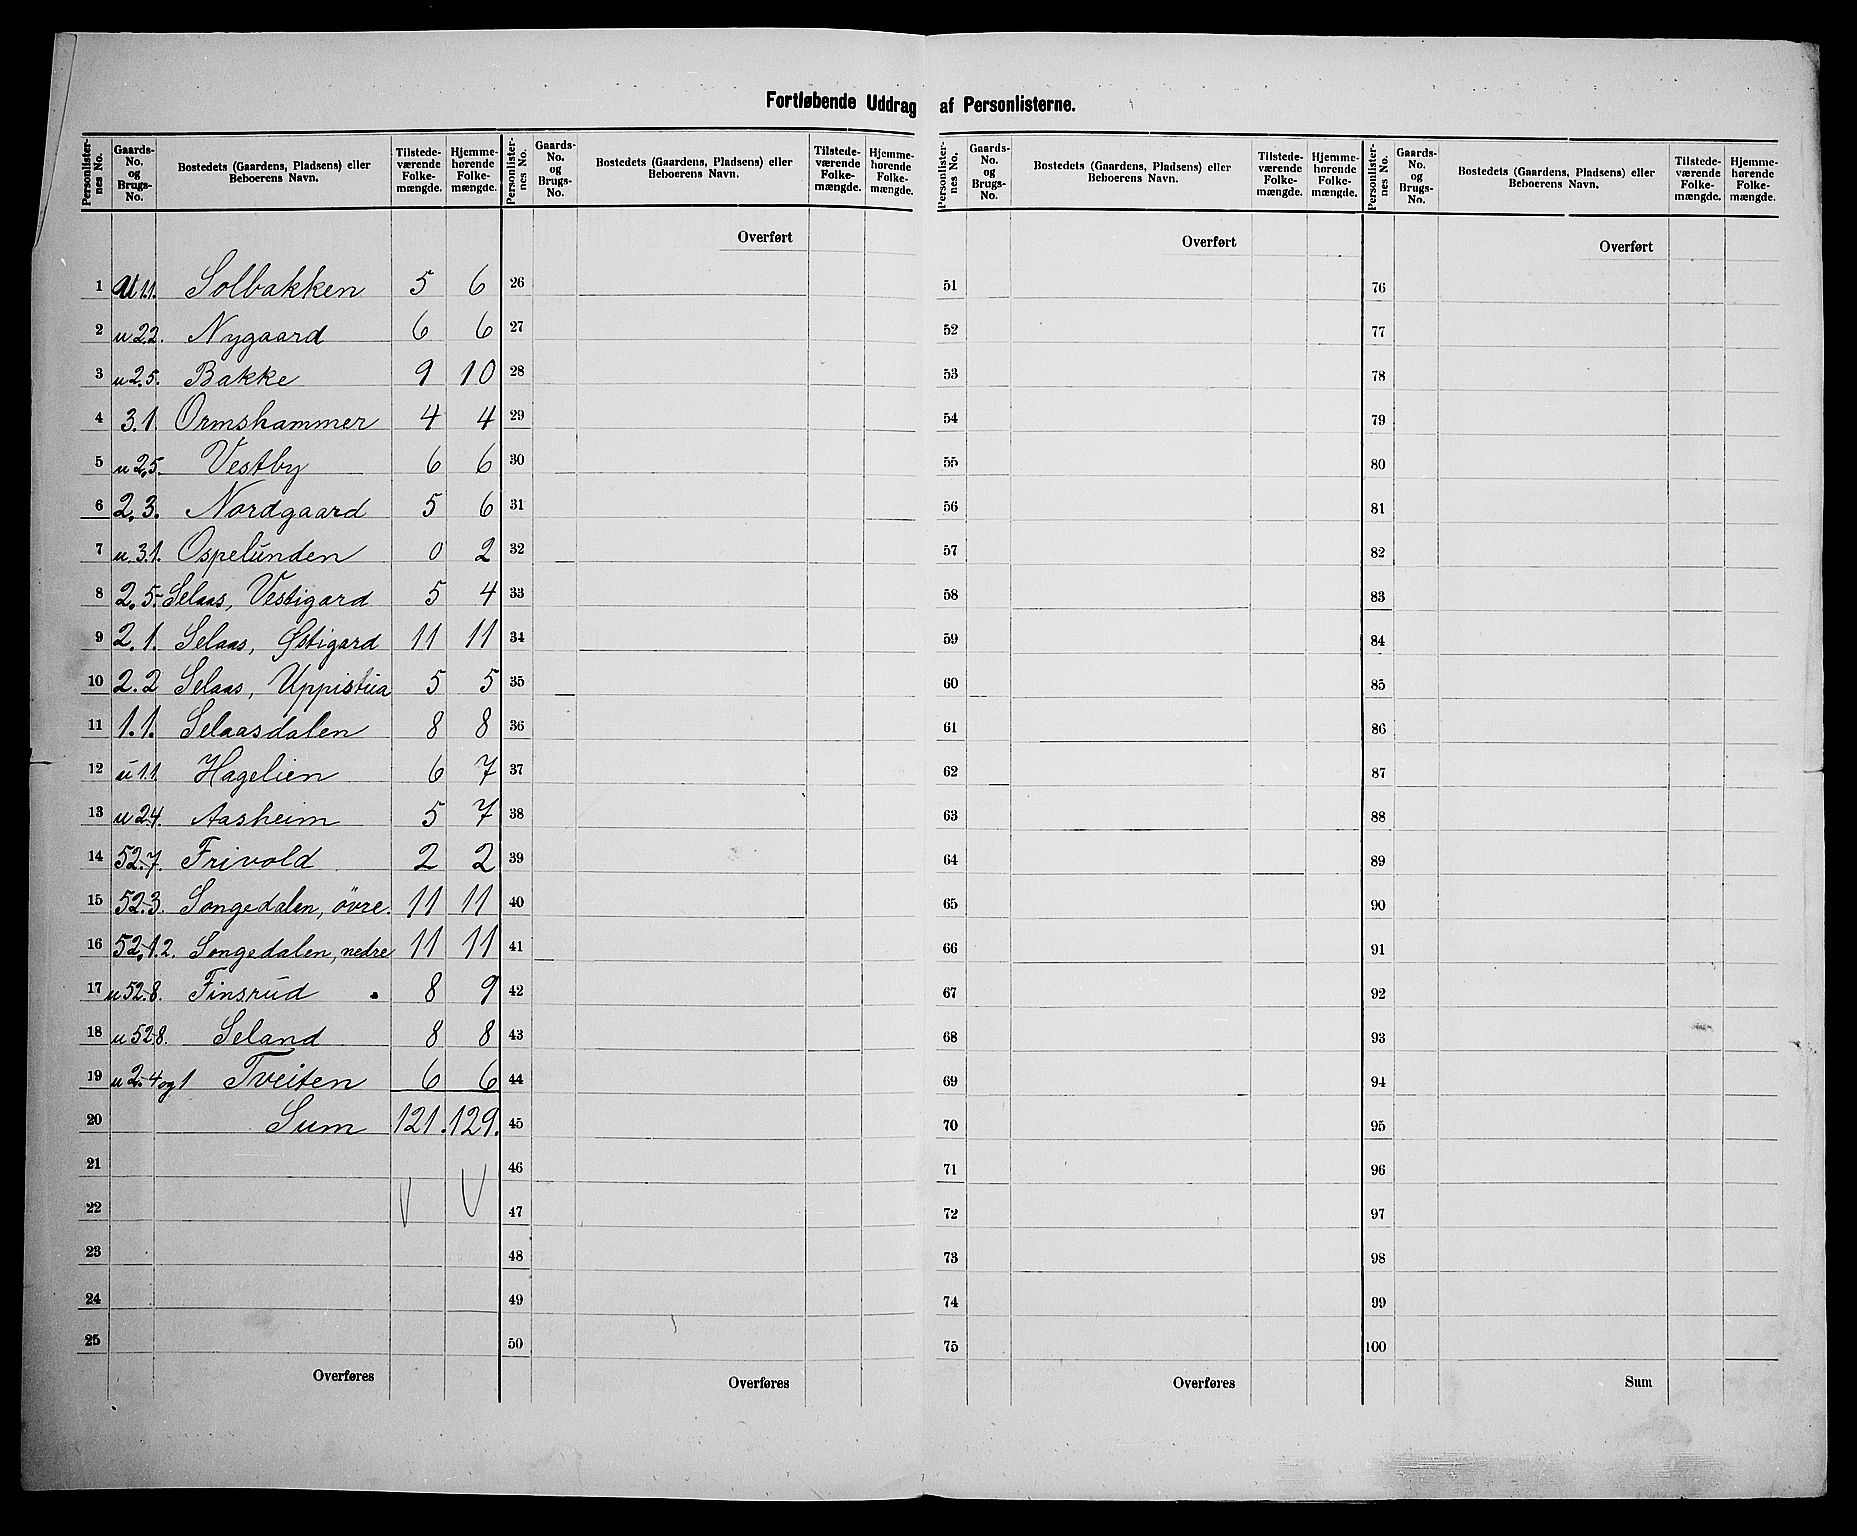 Fortløbende Uddrag af Personlisterne.
Personlister-nes No. Gaards-No. og Brugs-No. Bostedets (Gaardens, Pladsens) eller Beboerens Navn. Tilstede-værende Folke-mængde. Hjemme-hørende Folke-mængde.
1 u 1.1. Solbakken 5 6
2 u 2.2. Nygaard 6 6
3 u 2.5. Bakke 9 10
4 3.1. Ormshammer 4 4
5 u 2.5. Vestby 6 6
6 2.3. Nordgaard 5 6
7 u. 3.1. Ospelunden 0 2
8 2.5. Selaas, Vestigard 5 4
9 2.1. Selaas, Østigard 11 11
10 2.2 Selaas, Uppistua 5 5
11 1.1. Selaasdalen 8 8
12 u 1.1. Hagelien 6 7
13 u 2.4. Aasheim 5 7
14 52.7. Frivold 2 2
15 52.3. Songedalen, övre. 11 11
16 52.1.2. Songedalen, nedre 11 11
17 u 52.8. Finsrud 8 9
18 u 52.8. Seland 8 8
19 u 2.4 og 1 Tveiten 6 6
20 Sum 121. 129.
21
22
23
24
25
Overføres
Personlister-nes No. Gaards-No. og Brugs-No. Bostedets (Gaardens, Pladsens) eller Beboerens Navn. Tilstede-værende Folke-mængde. Hjemme-hørende Folke-mængde.
Overført
26
27
28
29
30
31
32
33
34
35
36
37
38
39
40
41
42
43
44
45
46
47
48
49
50
Overføres
Personlister-nes No. Gaards-No. og Brugs-No. Bostedets (Gaardens, Pladsens) eller Beboerens Navn. Tilstede-værende Folke-mængde. Hjemme-hørende Folke-mængde.
Overført
51
52
53
54
55
56
57
58
59
60
61
62
63
64
65
66
67
68
69
70
71
72
73
74
75
Overføres
Personlister-nes No. Gaards-No. og Brugs-No. Bostedets (Gaardens, Pladsens) eller Beboerens Navn. Tilstede-værende Folke-mængde. Hjemme-hørende Folke-mængde.
Overført
76
77
78
79
80
81
82
83
84
85
86
87
88
89
90
91
92
93
94
95
96
97
98
99
100
Sum